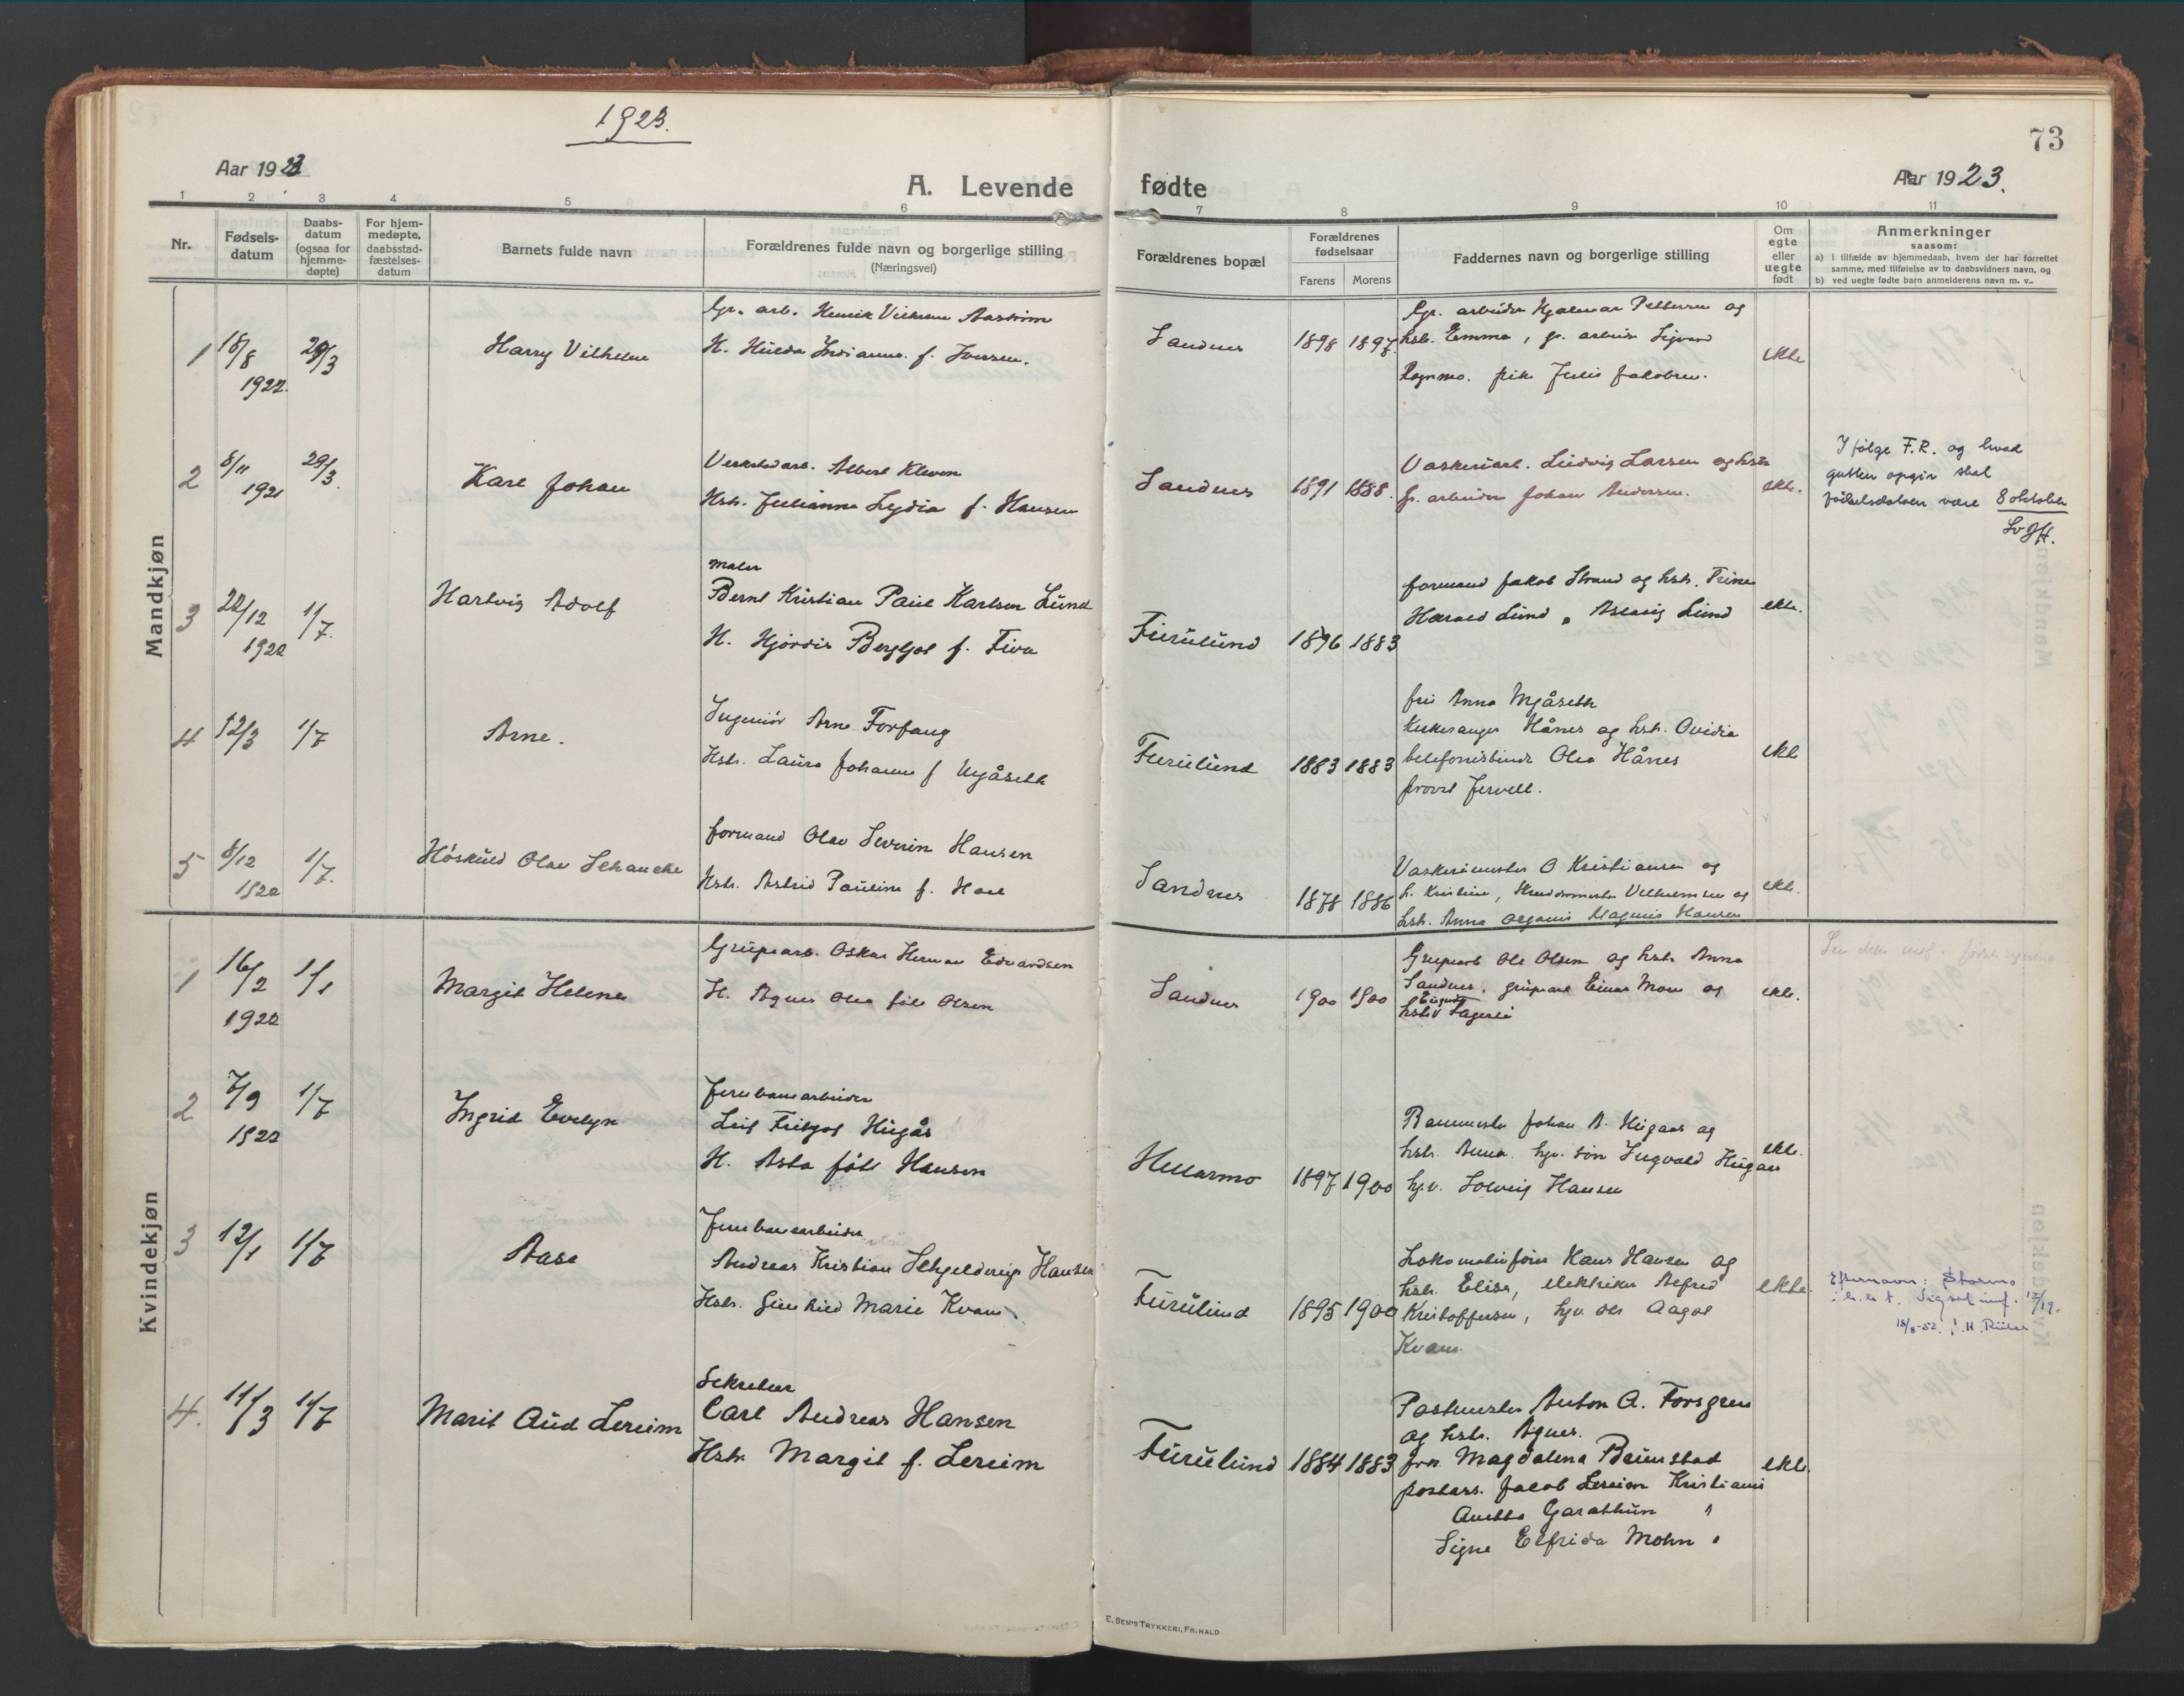 1923.
73
Aar 1923
A. Levende
fødte
Aar 1923.
1 2 3 4 5 6 7 8 9 10 11
Nr.
Fødsels-
datum
Daabs-
datum
(ogsaa for
hjemme-
døpte)
For hjem-
medøpte,
daabsstad-
fæstelses-
datum
Barnets fulde navn
Forældrenes fulde navn og borgerlige stilling
(Næringsvei)
Forældrenes bopæl
Forældrenes
fødselsaar
Farens Morens
Faddernes navn og borgerlige stilling
Om
egte
eller
uegte
født
Anmerkninger
saasom:
a) i tilfælde av hjemmedaab, hvem der har forrettet
samme, med tilføielse av to daabsvidners navn, og
b) ved uegte fødte barn anmelderens navn m. v..
Mandkjøn
1 18/8 1922. 29/3 Harry Vilhelm
Gr. arb. Henrik Vilhelm Aastrøm
H. Hulda Indianna f. Iversen.
Sandnes 1898 1897
Gr. arbeider Hjalmar Pettersen og
hstr. Emma, gr. arbeider Sigvard
Rognmo. pike Julie Jakobsen.
ekte
2 8/11 1921 29/3. Karl Johan
Verkstedarb. Albert Kleven
Hstr. Julianne Lydia f. Hansen
Sandnes 1891 1888.
Vaskeriarb. Ludvig Larsen og hstr
gr. arbeider Johan Andersen.
ekte.
Ifølge F.R. og hvad
gutten opgir skal
fødselsdatoen være 8 oktober
3 22/12 1922 1/7. Hartvig Adolf
maler
Bernt Kristian Paul Karlsen Lund
H. Hjørdis Bergljot f. Five
Furulund 1896 1883
formand Jakob Strand og hstr. Trine
Harald Lund, Aslaug Lund
ekte.
4 12/3 1/7 Arne.
Ingeniør Arne Forfang
Hstr. Laura Johanne f Myåseth
Furulund 1883 1883
frk Anna Myåseth
Kirkesanger Hånes og hstr. Ovidia
telefonistinde Olea Hånes
provst Jervell.
ekte
5 8/12 1922 1/7. Høskuld Olav Schancke
formand Olav Severin Hansen
Hstr. Astrid Pauline f. Hall
Sandnes 1878 1886
Vaskerimester O Kristiansen og
h. Kristine, Vilhelmsen og
hstr. Anna Magnus Hansen
ekte.
Kvindekjøn
1 16/2 1922 1/1 Margit Helene
Grubearb. Oskar Herman Edvardsen
H. Agnes Olea født Olsen
Sandnes 1900 1900
Grubearb Ole Olsen og hstr Anna
Sandnes, grubearb Einar Moen og
hstr Fagerli
ekte.
2 7/9 1922 1/7 Ingrid Evelyn
Jernbanearbeider
Leif Fritjof Hugås
H. Asta født Hansen
Hellarmo 1897 1900
Banemester Johan B. Hugaas og
hstr. Anna. hjv. søn Ingvald Hugaas
hjv. Solveig Hansen
ekte.
3 12/1 1/7 Aase
Jernbanearbeider
Andreas Kristian Schjelderup Hansen
Hstr. Gunhild Marie Kvam
Furulund 1895 1900
Lokomotivfører Hans Hansen og
hstr. Elise, elektriker Alfred
Kristoffersen, hjv. dtr Aagot
Kvam.
ekte.
Efternavn: Stormo
4. 11/3 1/7 Marit Aud Lereim
Sekretær
Carl Andreas Hansen
Hstr. Margit f. Lereim
Furulund 1884 1883
Postmester Anton A. Forsgren
og hstr. Agnes.
frk Magdalena Beumstad
postass. Jacob Lereim Kristiania
Anetta Garathun "
Signe Elfrida Mohn "
ekte.
E. SEM'S TRYKKERI, FR.HALD